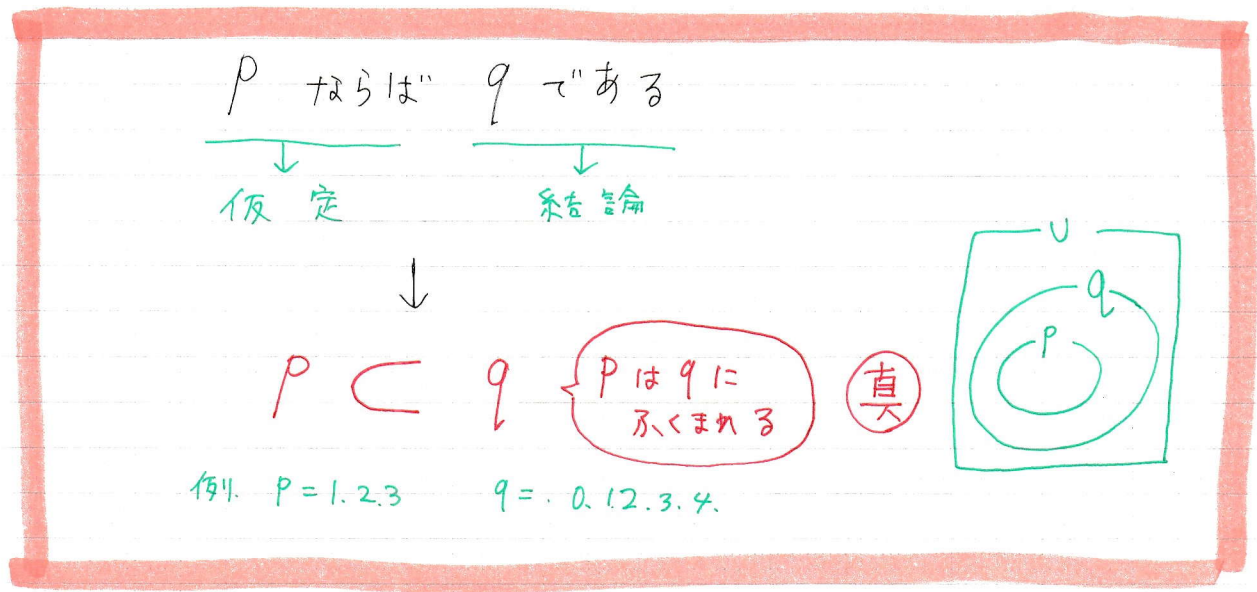 p ならば q である
仮定 結論
U
q
p
p ⊂ q
pはqに
ふくまれる
真
例. p=1.2.3 q=.0.1.2.3.4.